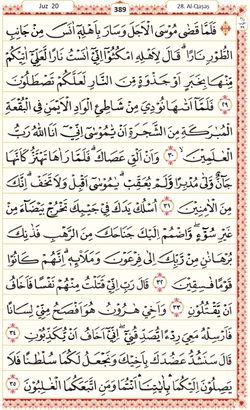 Juz 20
389
28. Al-Qaṣaṣ
فَلَمَّا قَضَىٰ مُوسَى الْأَجَلَ وَسَارَ بِأَهْلِهِۦٓ اٰنَسَ مِنْ جَانِبِ
الطُّوْرِ نَارًا ۚ قَالَ لِأَهْلِهِ امْكُثُوْٓا اِنِّيْٓ اٰنَسْتُ نَارًا لَّعَلِّيْٓ اٰتِيْكُمْ
مِّنْهَا بِخَبَرٍ اَوْ جَذْوَةٍ مِّنَ النَّارِ لَعَلَّكُمْ تَصْطَلُوْنَ
٢٩ فَلَمَّآ اَتٰىهَا نُوْدِيَ مِنْ شَاطِئِ الْوَادِ الْاَيْمَنِ فِي الْبُقْعَةِ
الْمُبٰرَكَةِ مِنَ الشَّجَرَةِ اَنْ يّٰمُوْسٰٓى اِنِّيْٓ اَنَا اللّٰهُ رَبُّ
الْعٰلَمِيْنَ ٣٠ وَاَنْ اَلْقِ عَصَاكَ ۚ فَلَمَّا رَاٰهَا تَهْتَزُّ كَاَنَّهَا
جَآنٌّ وَّلّٰى مُدْبِرًا وَّلَمْ يُعَقِّبْ ۚ يٰمُوْسٰٓى اَقْبِلْ وَلَا تَخَفْ ۗ اِنَّكَ
مِنَ الْاٰمِنِيْنَ ٣١ اُسْلُكْ يَدَكَ فِيْ جَيْبِكَ تَخْرُجْ بَيْضَآءَ مِنْ
غَيْرِ سُوْٓءٍ ۖ وَّاضْمُمْ اِلَيْكَ جَنَاحَكَ مِنَ الرَّهْبِ فَذٰنِكَ
بُرْهَانٰنِ مِنْ رَّبِّكَ اِلٰى فِرْعَوْنَ وَمَلَا۟ئِهٖ ۚ اِنَّهُمْ كَانُوْا
قَوْمًا فٰسِقِيْنَ ٣٢ قَالَ رَبِّ اِنِّيْ قَتَلْتُ مِنْهُمْ نَفْسًا فَاَخَافُ
اَنْ يَّقْتُلُوْنِ ٣٣ وَاَخِيْ هٰرُوْنُ هُوَ اَفْصَحُ مِنِّيْ لِسَانًا
فَاَرْسِلْهُ مَعِيَ رِدْءًا يُّصَدِّقُنِيْٓ ۖ اِنِّيْٓ اَخَافُ اَنْ يُّكَذِّبُوْنِ ٣٤
قَالَ سَنَشُدُّ عَضُدَكَ بِاَخِيْكَ وَنَجْعَلُ لَكُمَا سُلْطٰنًا فَلَا
يَصِلُوْنَ اِلَيْكُمَا ۚ بِاٰيٰتِنَآ ۚ اَنْتُمَا وَمَنِ اتَّبَعَكُمَا الْغٰلِبُوْنَ ٣٥